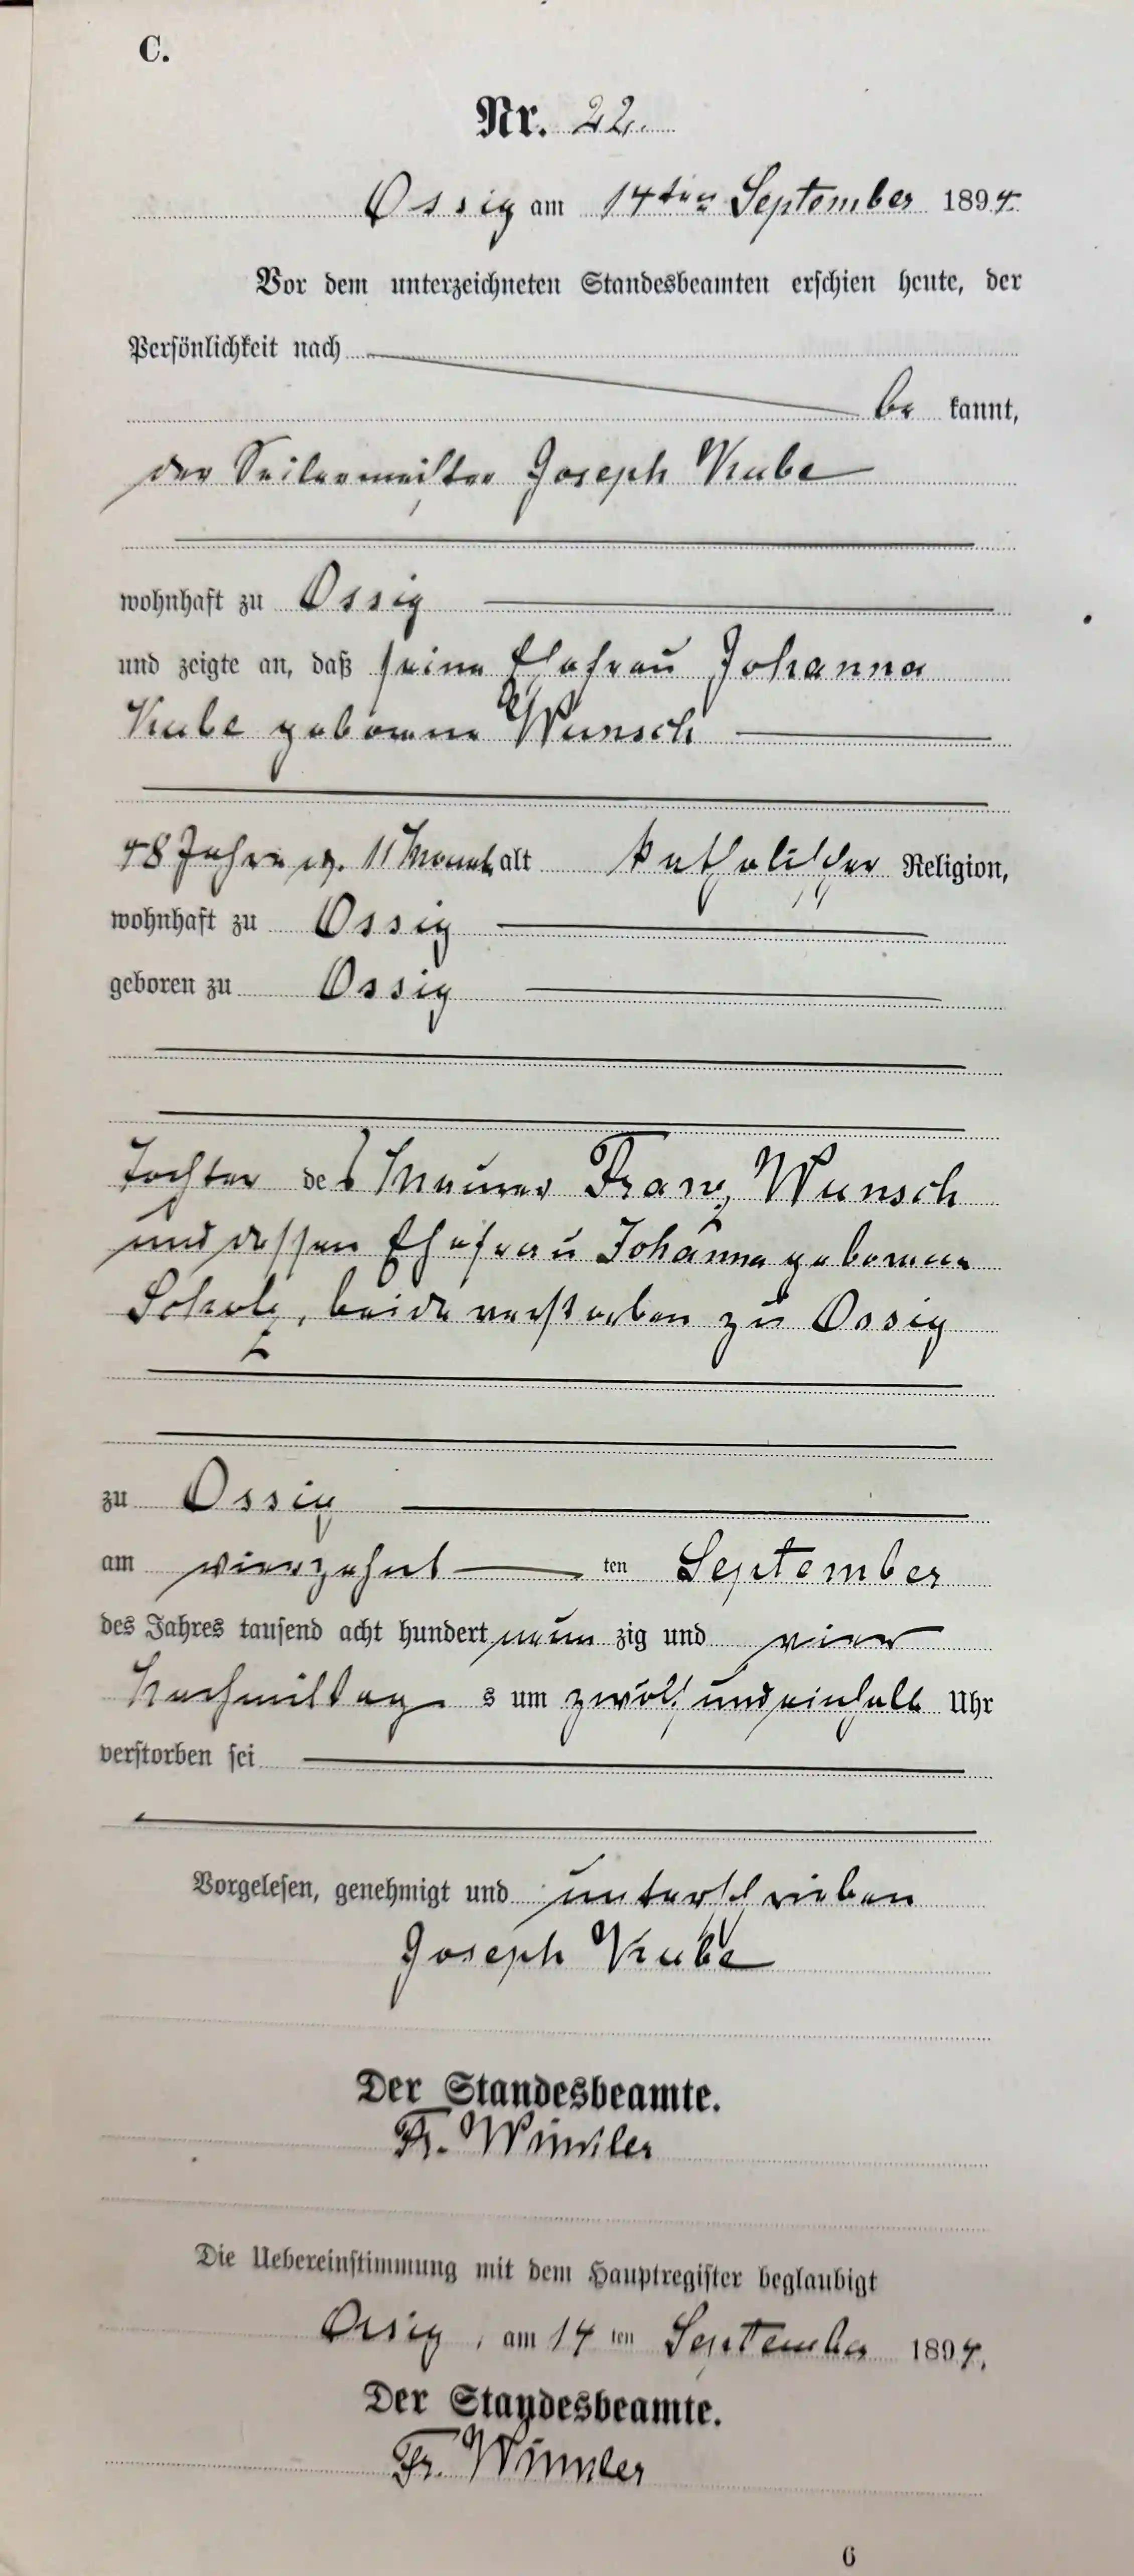 C.
Nr. 22.
Ossig am 14ten September 1894.
Vor dem unterzeichneten Standesbeamten erschien heute, der
Persönlichkeit nach
be kannt,
der Seilermeister Joseph Kube
wohnhaft zu Ossig
und zeigte an, daß seine Ehefrau Johanna
Kube geborene Wunsch
48 Jahre 11 Monat alt katholischer Religion,
wohnhaft zu Ossig
geboren zu Ossig
Tochter des Maurer Franz Wunsch
und dessen Ehefrau Johanna geborene
Scholz, beide verstorben zu Ossig
zu Ossig
am vierzehnt ten September
des Jahres tausend acht hundert neun zig und vier
Nachmittag s um zwölf und einhalb Uhr
verstorben sei
Vorgelesen, genehmigt und unterschrieben
Joseph Kube
Der Standesbeamte.
Fr. Winkler
Die Uebereinstimmung mit dem Hauptregister beglaubigt
Ossig, am 14 ten September 1894.
Der Standesbeamte.
Fr. Winkler
6